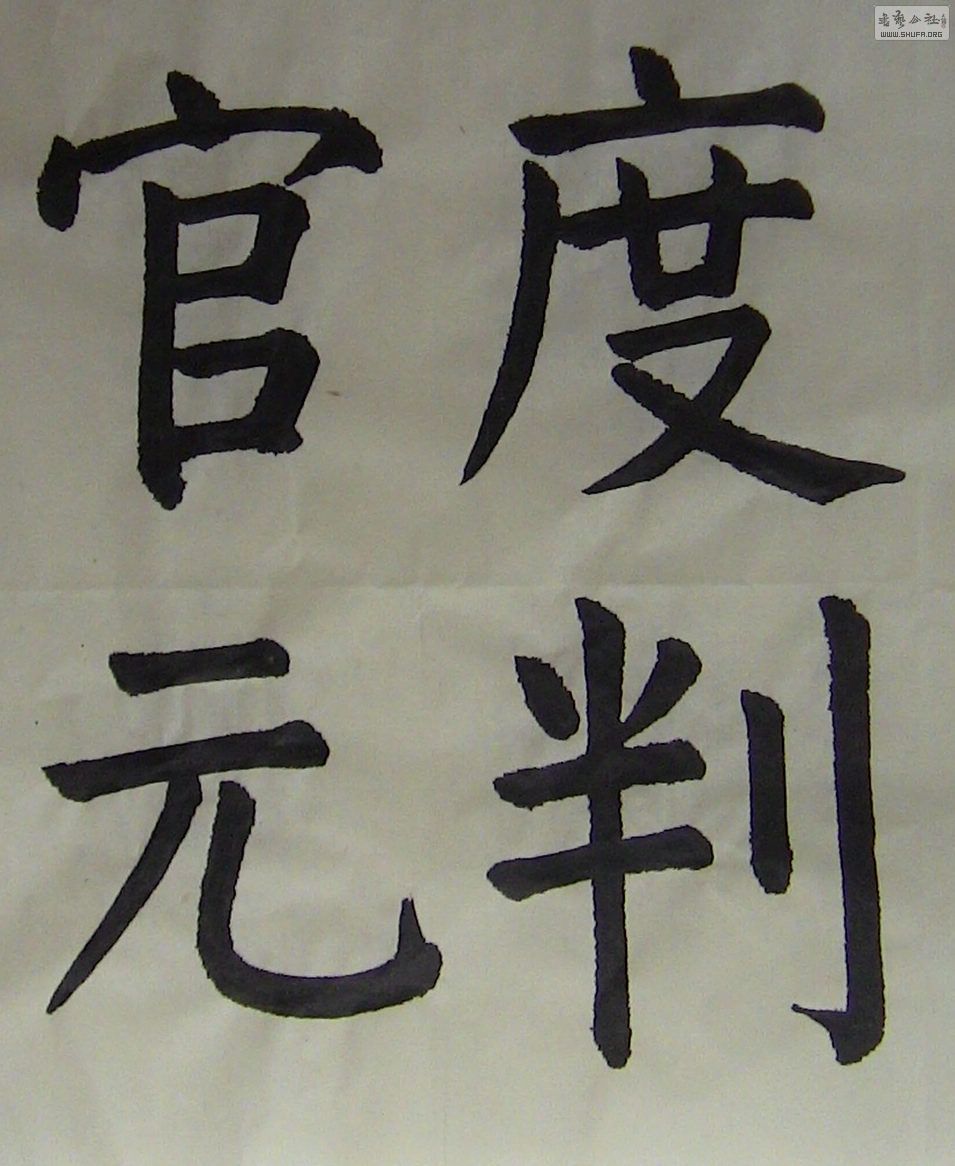 度判
官元
書藝公社
WWW.SHUFA.ORG